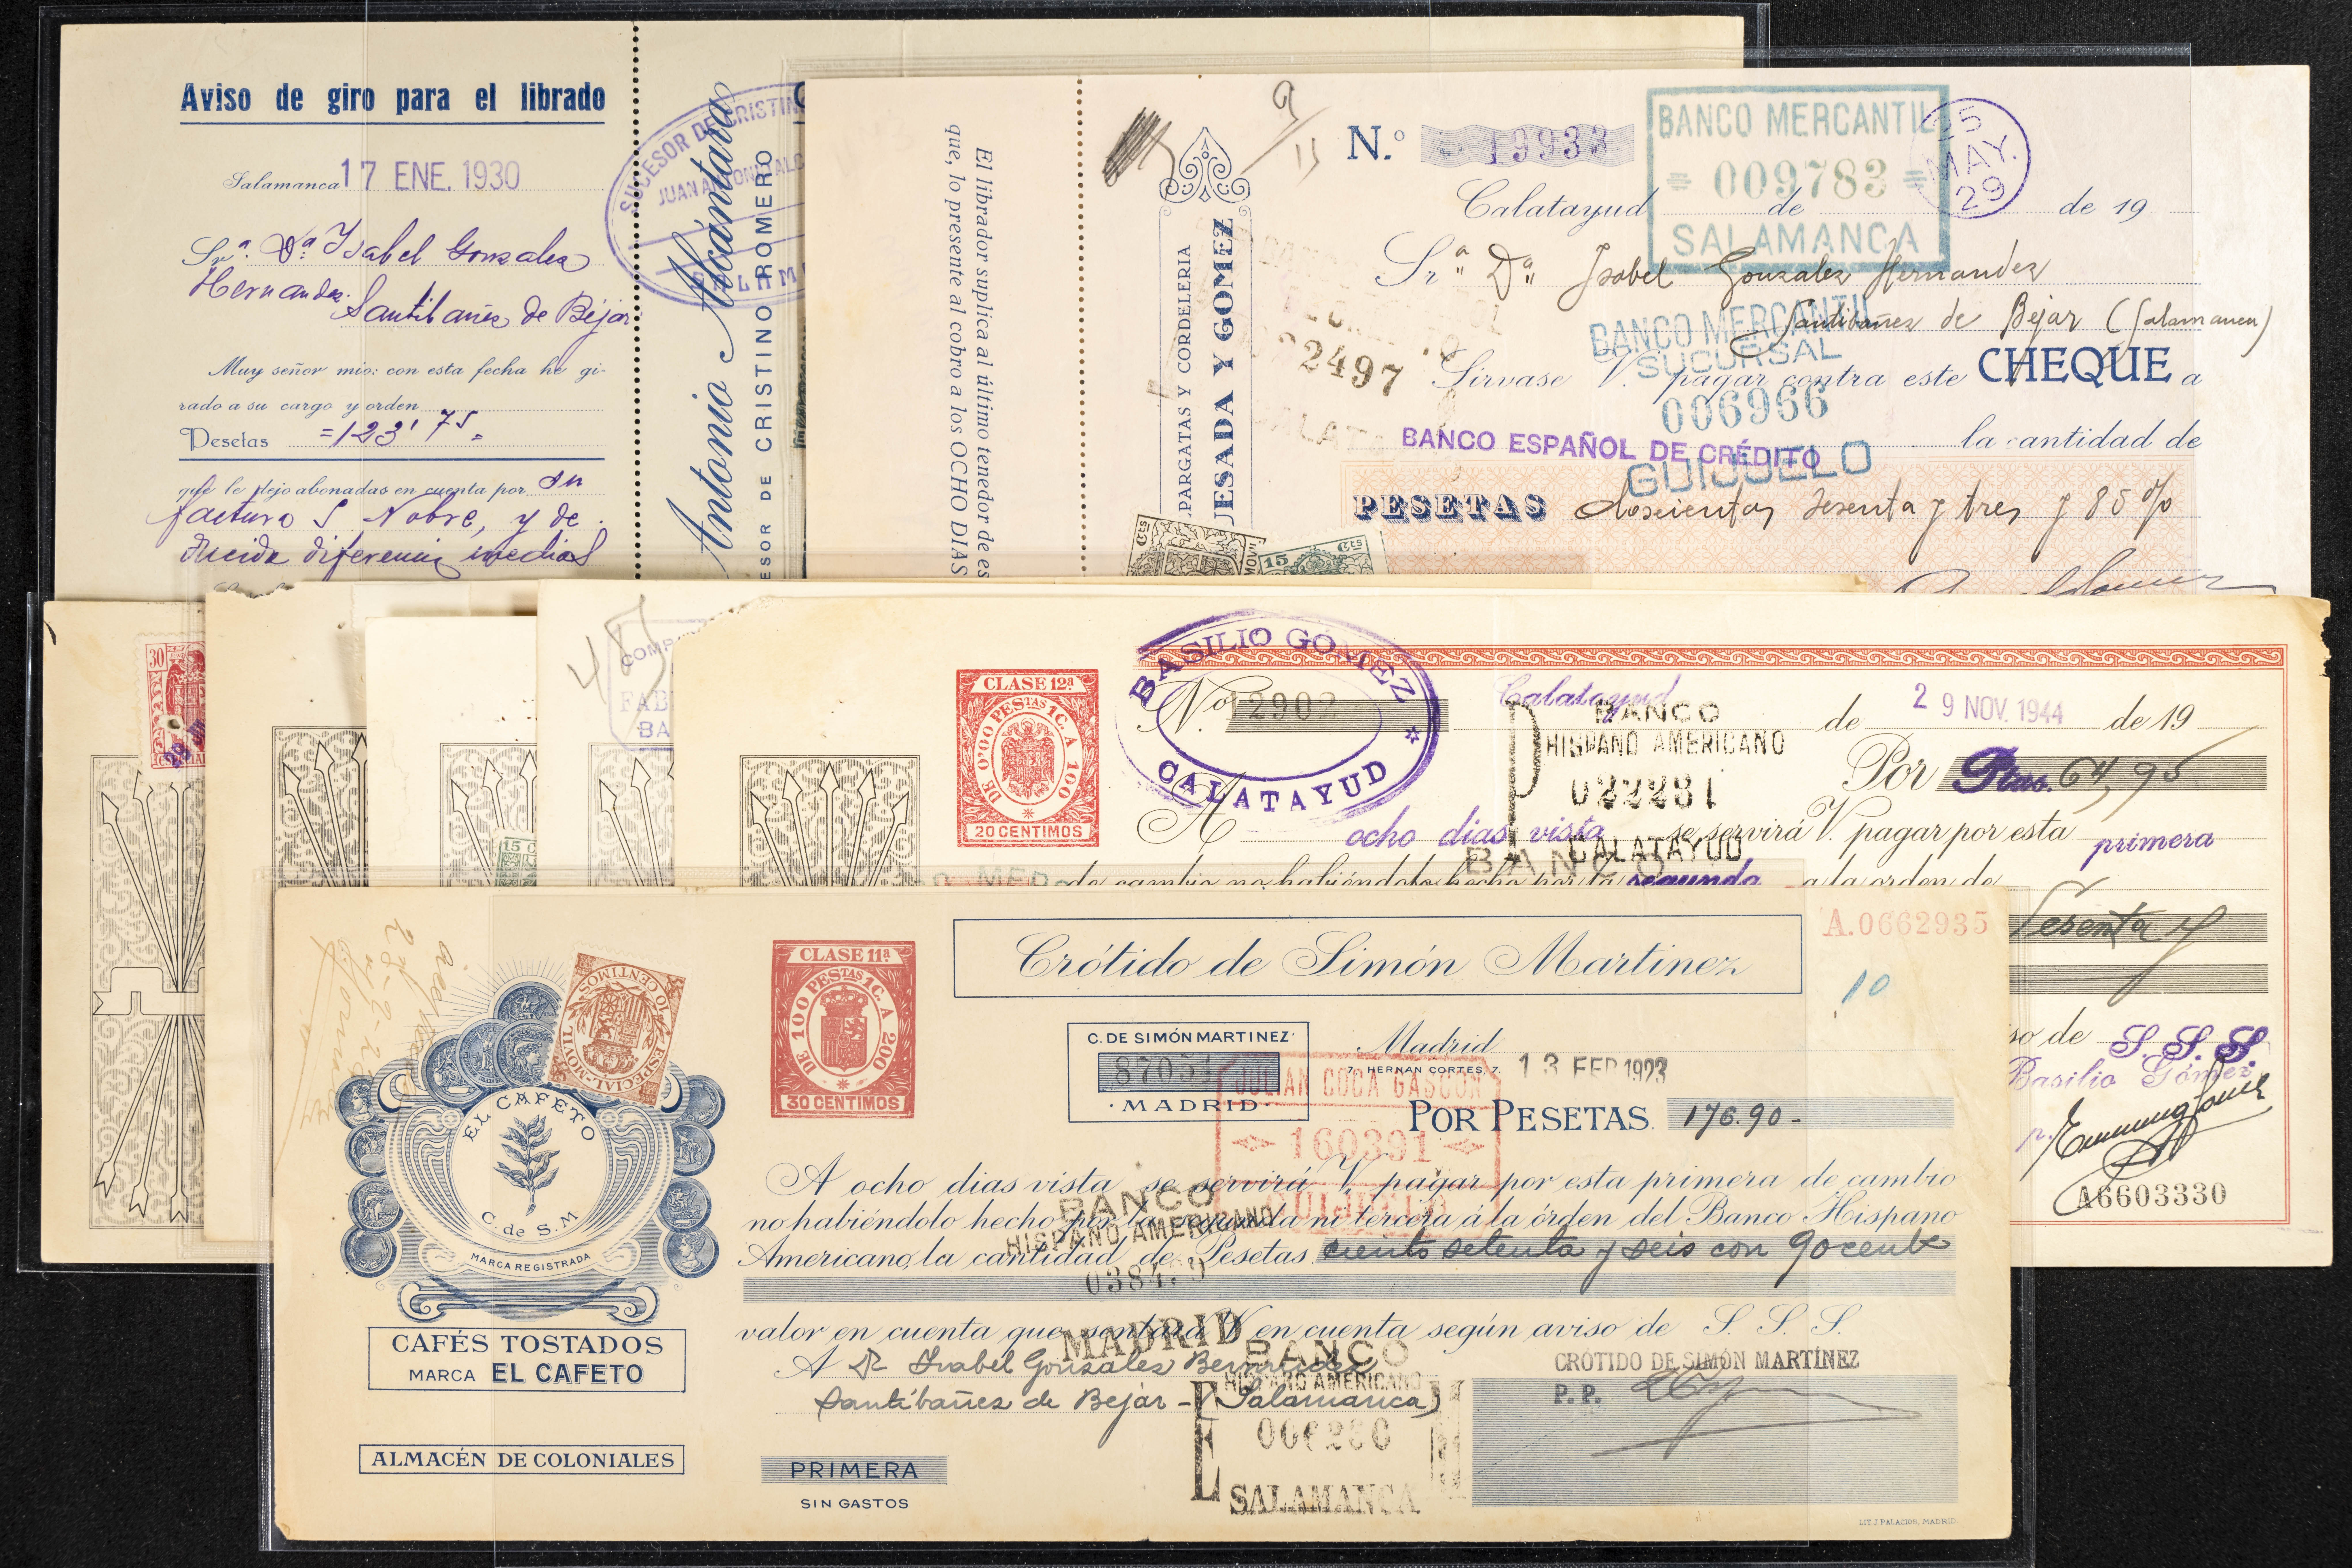 Aviso de giro para el librado
Salamanca 17 ENE. 1930
Sr.ª D.ª Isabel Gonzalez
Hernandez
Santibañez de Béjar
Muy señor mio: con esta fecha he gi-
rado a su cargo y orden
Pesetas =123'75=
que le dejo abonadas en cuenta por su
factura S Nobre, y de
diferencia
SUCESOR DE CRISTIN
JUAN ANTONIO ALC
SALAM
Antonio Alcántara
ESOR DE CRISTINO ROMERO
El librador suplica al último tenedor de es
que, lo presente al cobro a los OCHO DIAS
PARGATAS Y CORDELERIA
UESADA Y GOMEZ
9/11
N.º 19933
BANCO MERCANTIL
= 009783 =
SALAMANCA
25
MAY.
29
Calatayud de de 19
Sr.ª Dª Isabel Gonzalez Hernandez
Santibañez de Bejar (Salamanca)
BANCO MERCANTIL
SUCURSAL
006966
GUIJUELO
2497
Sirvase V. pagar contra este CHEQUE a
BANCO ESPAÑOL DE CRÉDITO
la cantidad de
PESETAS doscientas sesenta y tres y 85 %
Cts
15 Cts
30
15 C
COMP
FAB
BA
CLASE 12ª
DE 0'00 PESTAS 1C. A 100
20 CENTIMOS
BASILIO GOMEZ
CALATAYUD
No 12902
Calatayud de 29 NOV. 1944 de 19
BANCO
HISPANO AMERICANO
022281
CALATAYUD
Por Ptas. 64,95
A ocho dias vista se servirá V. pagar por esta primera
de cambio no habiéndolo hecho por la segunda a la orden de
BANCO
Sesenta y
so de S. S. S.
Basilio Gómez
p.
A6603330
Crótido de Simón Martinez
A.0662935
10
CLASE 11ª
DE 100 PESTAS 1C. A 200
30 CENTIMOS
ESPECIAL-MOVIL
10 CENTIMOS
C. DE SIMÓN MARTINEZ
87051
MADRID
Madrid
7, HERNAN CORTES, 7.
13 FEB 1923
JULIAN COCA GASCON
160391
GUIJUELO
POR PESETAS. 176.90-
A ocho dias vista se servirá V. pagar por esta primera de cambio
no habiéndolo hecho por la segunda ni tercera á la órden del Banco Hispano
Americano, la cantidad de Pesetas ciento setenta y seis con 90 cent
BANCO
HISPANO AMERICANO
MADRID
valor en cuenta que sentará V. en cuenta según aviso de S. S. S.
A Isabel Gonzalez
Santibañez de Bejar - (Salamanca)
BANCO
HISPANO AMERICANO
SALAMANCA
CRÓTIDO DE SIMÓN MARTÍNEZ
P. P.
EL CAFETO
C. de S. M
MARCA REGISTRADA
CAFÉS TOSTADOS
MARCA EL CAFETO
ALMACÉN DE COLONIALES
PRIMERA
SIN GASTOS
LIT. J. PALACIOS, MADRID